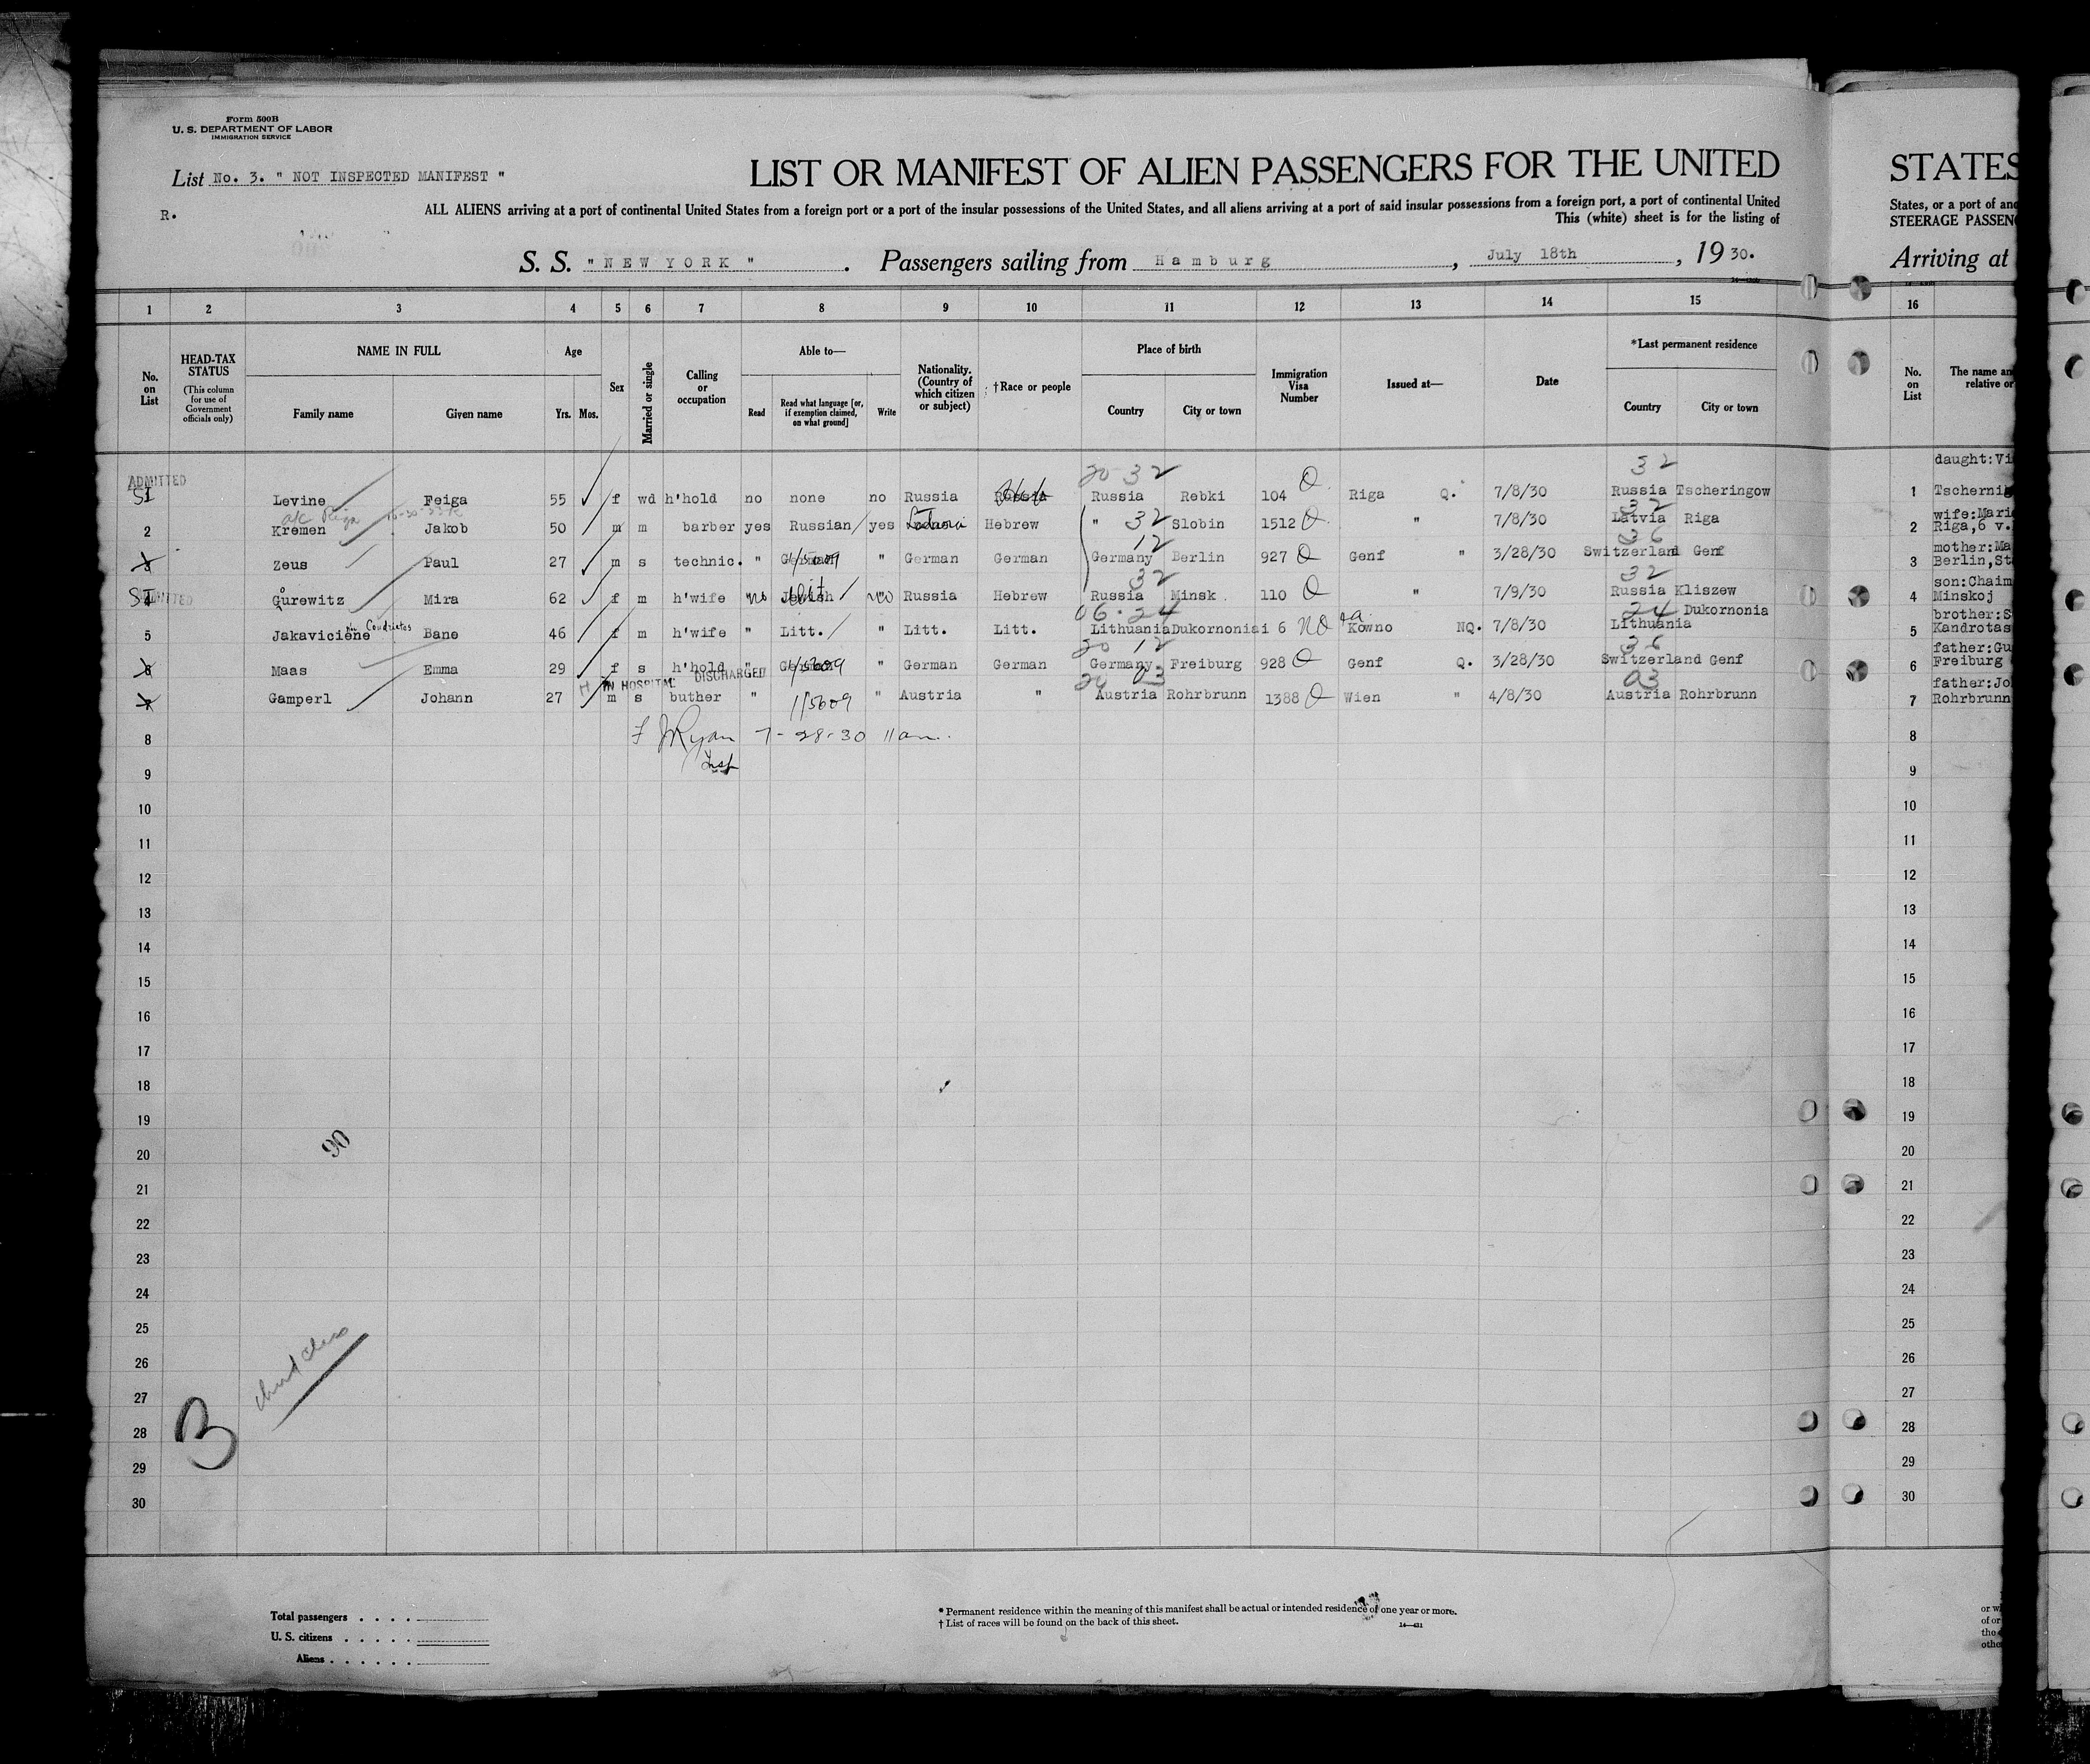 Form 500B
U. S. DEPARTMENT OF LABOR
IMMIGRATION SERVICE
List No. 3. " NOT INSPECTED MANIFEST "
R.
LIST OR MANIFEST OF ALIEN PASSENGERS FOR THE UNITED
STATES
ALL ALIENS arriving at a port of continental United States from a foreign port or a port of the insular possessions of the United States, and all aliens arriving at a port of said insular possessions from a foreign port, a port of continental United
States, or a port of
This (white) sheet is for the listing of
STEERAGE
S. S. " NEW YORK " . Passengers sailing from Hamburg , July 18th , 19 30.
Arriving at
1 2 3 4 5 6 7 8 9 10 11 12 13 14 15 16
No. on List
HEAD-TAX STATUS (This column for use of Government officials only)
NAME IN FULL
Family name Given name
Age
Yrs. Mos.
Sex
Married or single
Calling or occupation
Able to—
Read Read what language [or, if exemption claimed, on what ground] Write
Nationality. (Country of which citizen or subject)
†Race or people
Place of birth
Country City or town
Immigration Visa Number
Issued at—
Date
*Last permanent residence
Country City or town
No. on List
The name
relative or
ADMITTED
20-32 32
SI Levine Feiga 55 f wd h'hold no none no Russia Russia Rebki 104 Riga Q. 7/8/30 Russia Tscheringow
1 daught:
2 Kremen Jakob 50 m m barber yes Russian yes Hebrew " 32 Slobin 1512 " 7/8/30 Latvia Riga
2 wife:
Riga, 6 v.
3 Zeus Paul 27 m s technic. " German " German German Germany 12 Berlin 927 Genf " 3/28/30 Switzerland Genf 36
3 mother:
Berlin,
SI ADMITTED Gurewitz Mira 62 f m h'wife no Jewish no Russia Hebrew Russia 32 Minsk 110 " 7/9/30 Russia Kliszew 32
4 son:Chaim
Minskoj
5 Jakaviciene Bane 46 f m h'wife " Litt. " Litt. Litt. Lithuania Dukornoniai 6 NO Kowno NQ. 7/8/30 Lithuania Dukornonia 24
06-24
5 brother:
Kandrotas
6 Maas Emma 29 f s h'hold " German " German German Germany 12 Freiburg 928 Genf Q. 3/28/30 Switzerland Genf 36
6 father:
Freiburg
IN HOSPITAL DISCHARGED
7 Gamperl Johann 27 m s buther " 115609 " Austria " Austria 03 Rohrbrunn 1388 Wien " 4/8/30 Austria Rohrbrunn 03
7 father:
Rohrbrunn
8 F J Ryan 7-28-30 11 am. 8
Insp
9 9
10 10
11 11
12 12
13 13
14 14
15 15
16 16
17 17
18 18
19 19
90
20 20
21 21
22 22
23 23
24 24
25 25
26 26
27 27
28 28
B
29 29
30 30
Total passengers
U. S. citizens
Aliens
* Permanent residence within the meaning of this manifest shall be actual or intended residence of one year or more.
† List of races will be found on the back of this sheet.